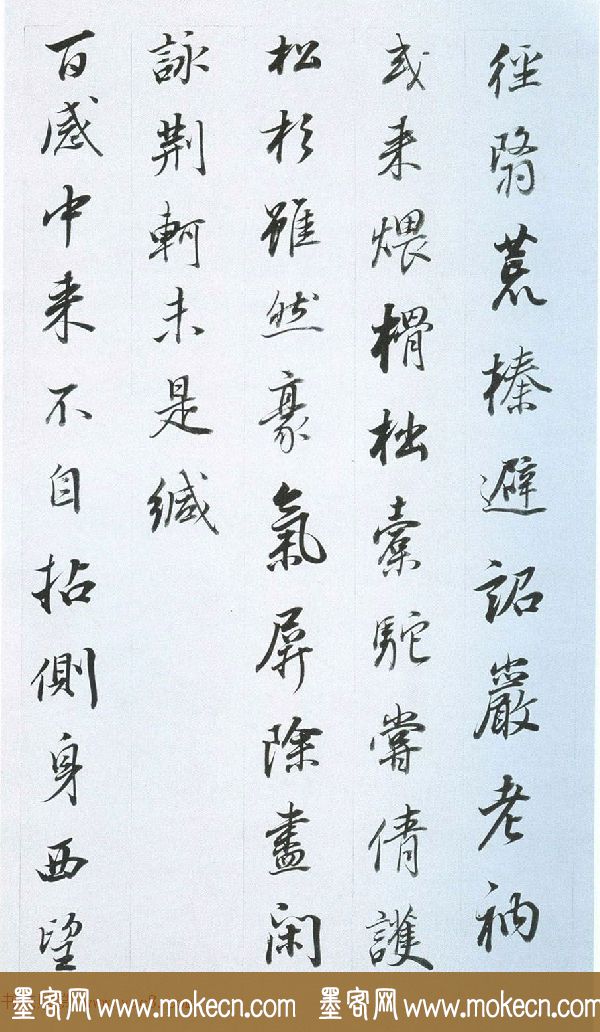 徑翳荒榛避詔巖老衲
或来煨榾柮橐駝嘗倩護
松杉雖然豪氣屏除盡閑
詠荆軻未是緘
百感中来不自拈側身西望
墨客网 www.mokecn.com 墨客网 www.mokecn.com